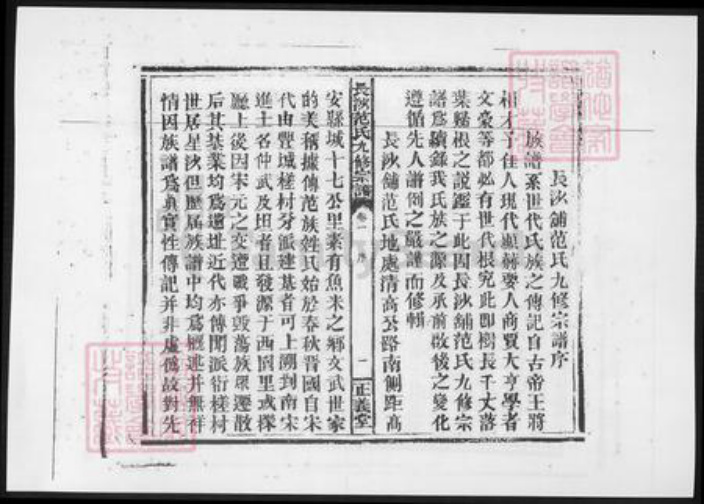 長沙舖范氏九修宗譜序
族譜系世代氏族之傳記自古帝王將
相才子佳人現代顯赫要人商賈大亨學者
文豪等都必有世代根究此即樹長千丈落
葉歸根之説鑒于此因長沙舖范氏九修宗
譜爲續錄我氏族之源及承前啟後之變化
遵循先人譜例之嚴謹而修輯
長沙舖范氏地處清高公路南側距高
長沙范氏九修宗譜
卷一 序
一
正義堂
安縣城十七公里素有魚米之鄉文武世家
的美稱據傳范族姓氏始於春秋晋國自宋
代由豐城槎村分派建基者可上溯到南宋
進士名仲武及坦者且發源于西團里或樑
廳上後因宋元之交遭戰爭毀蕩族眾遷散
后其基業均爲遺址近代亦傳聞派衍槎村
世居星沙但歷屆族譜中均爲概述并無詳
情因族譜爲真實性傳記并非虛僞故對先